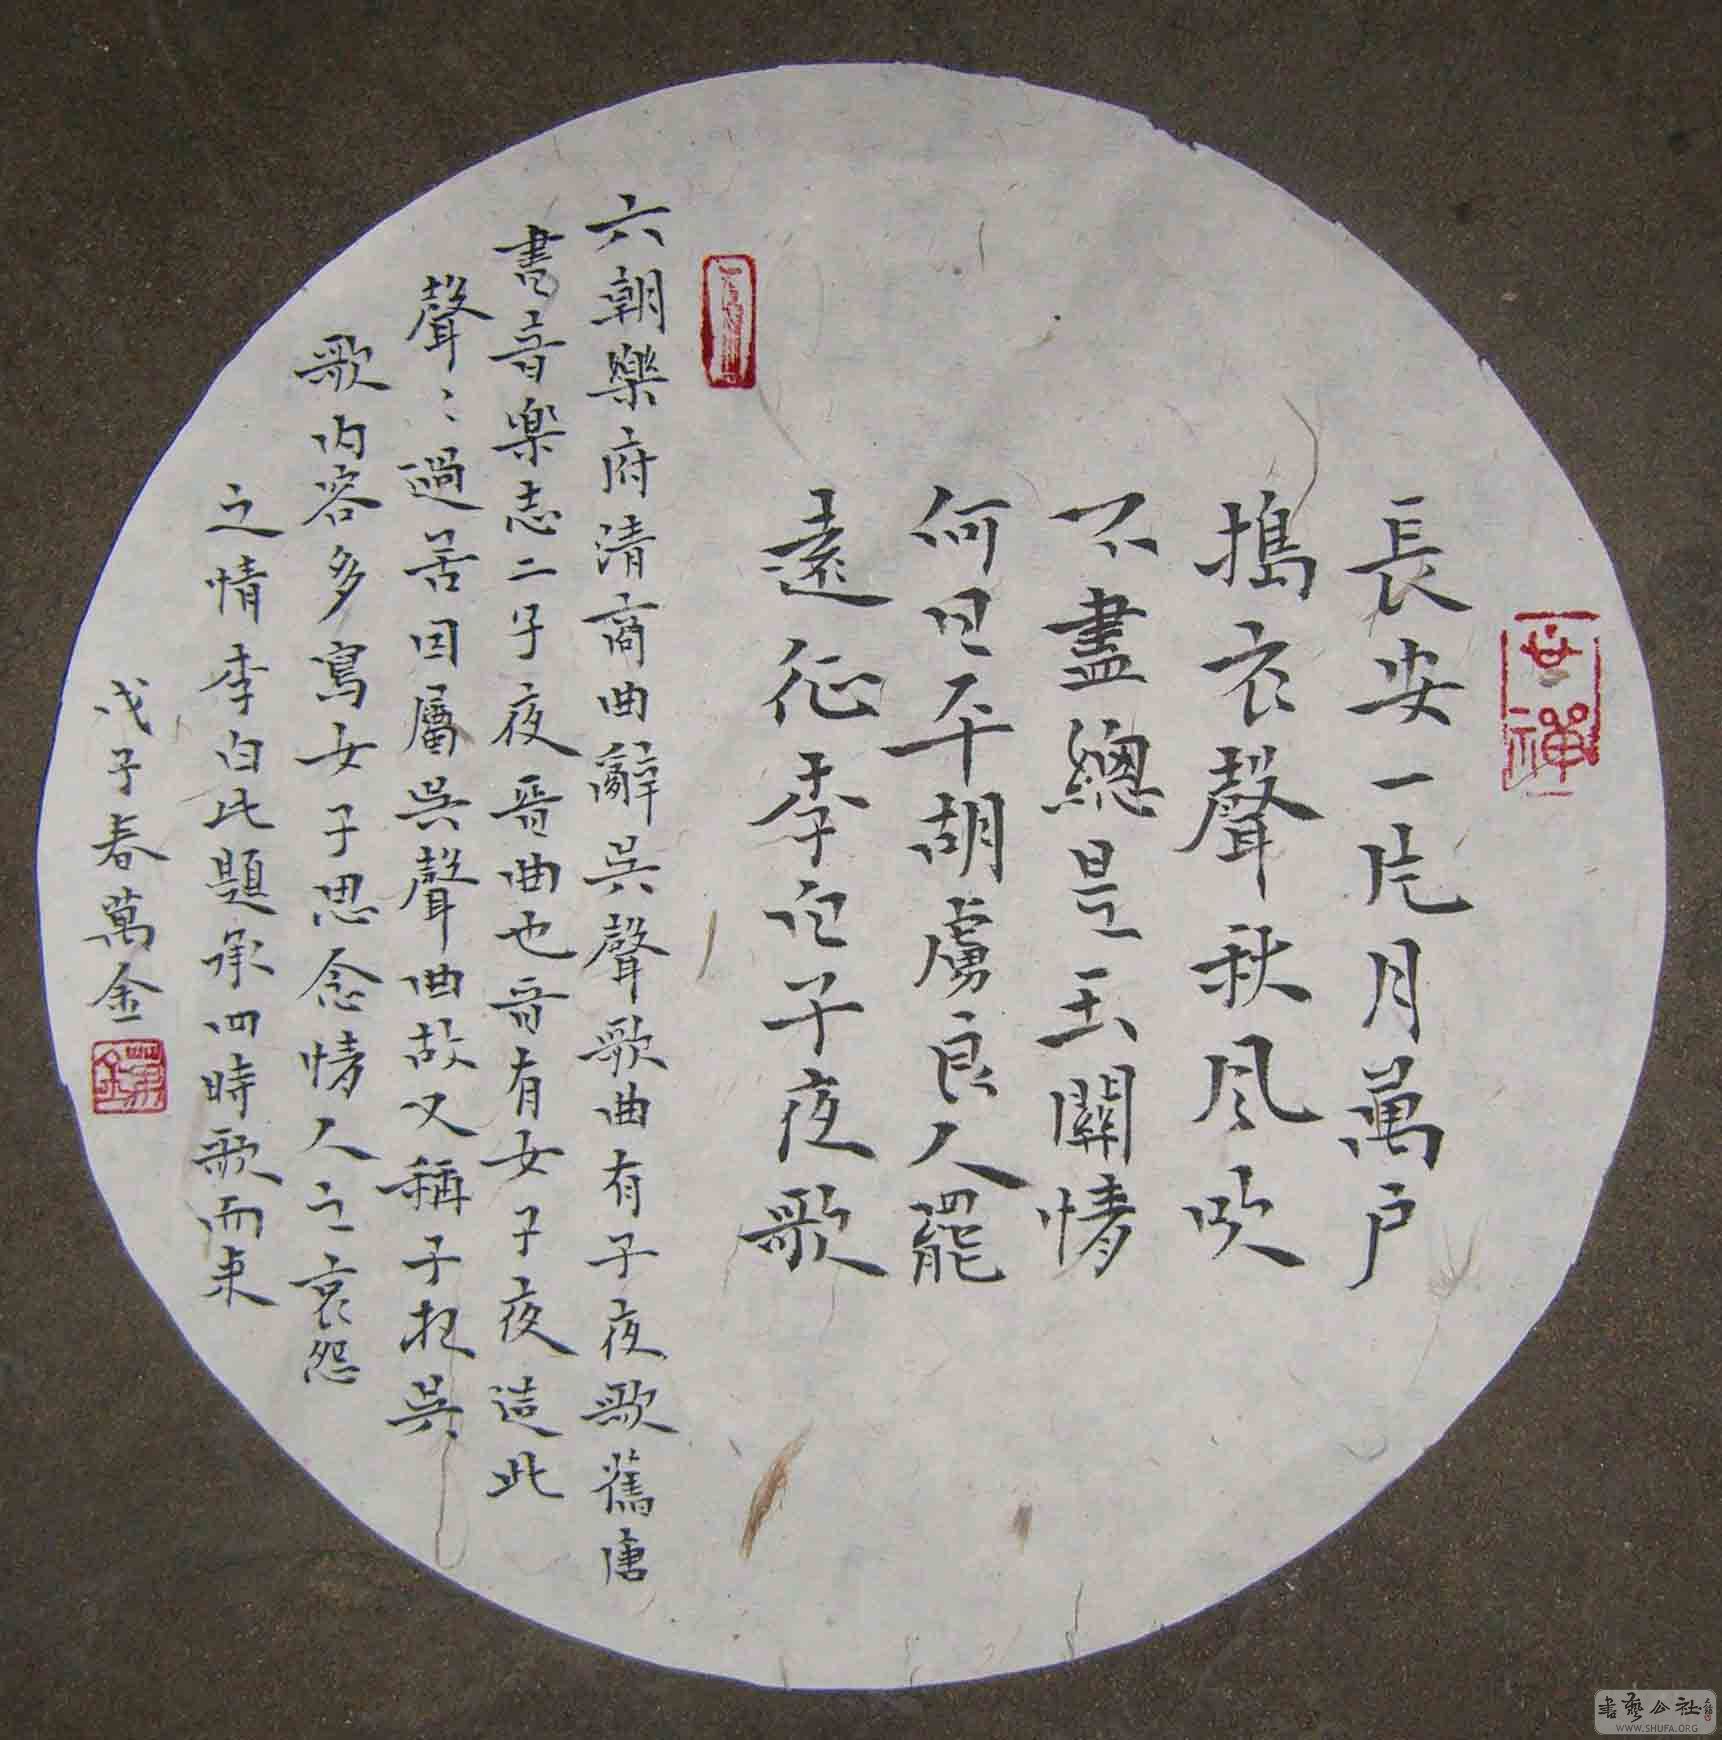 長安一片月萬户
搗衣聲秋风吹
不盡總是玉關情
何日平胡虜良人罷
遠征李白子夜歌
六朝樂府清商曲辭吳聲歌曲有子夜歌舊唐
書音樂志二子夜晋曲也晋有女子夜造此
聲聲過苦因屬吳聲曲故又稱子夜吳
歌内容多寫女子思念情人之哀怨
之情李白此題承四時歌而来
戊子春萬金
書藝公社
WWW.SHUFA.ORG